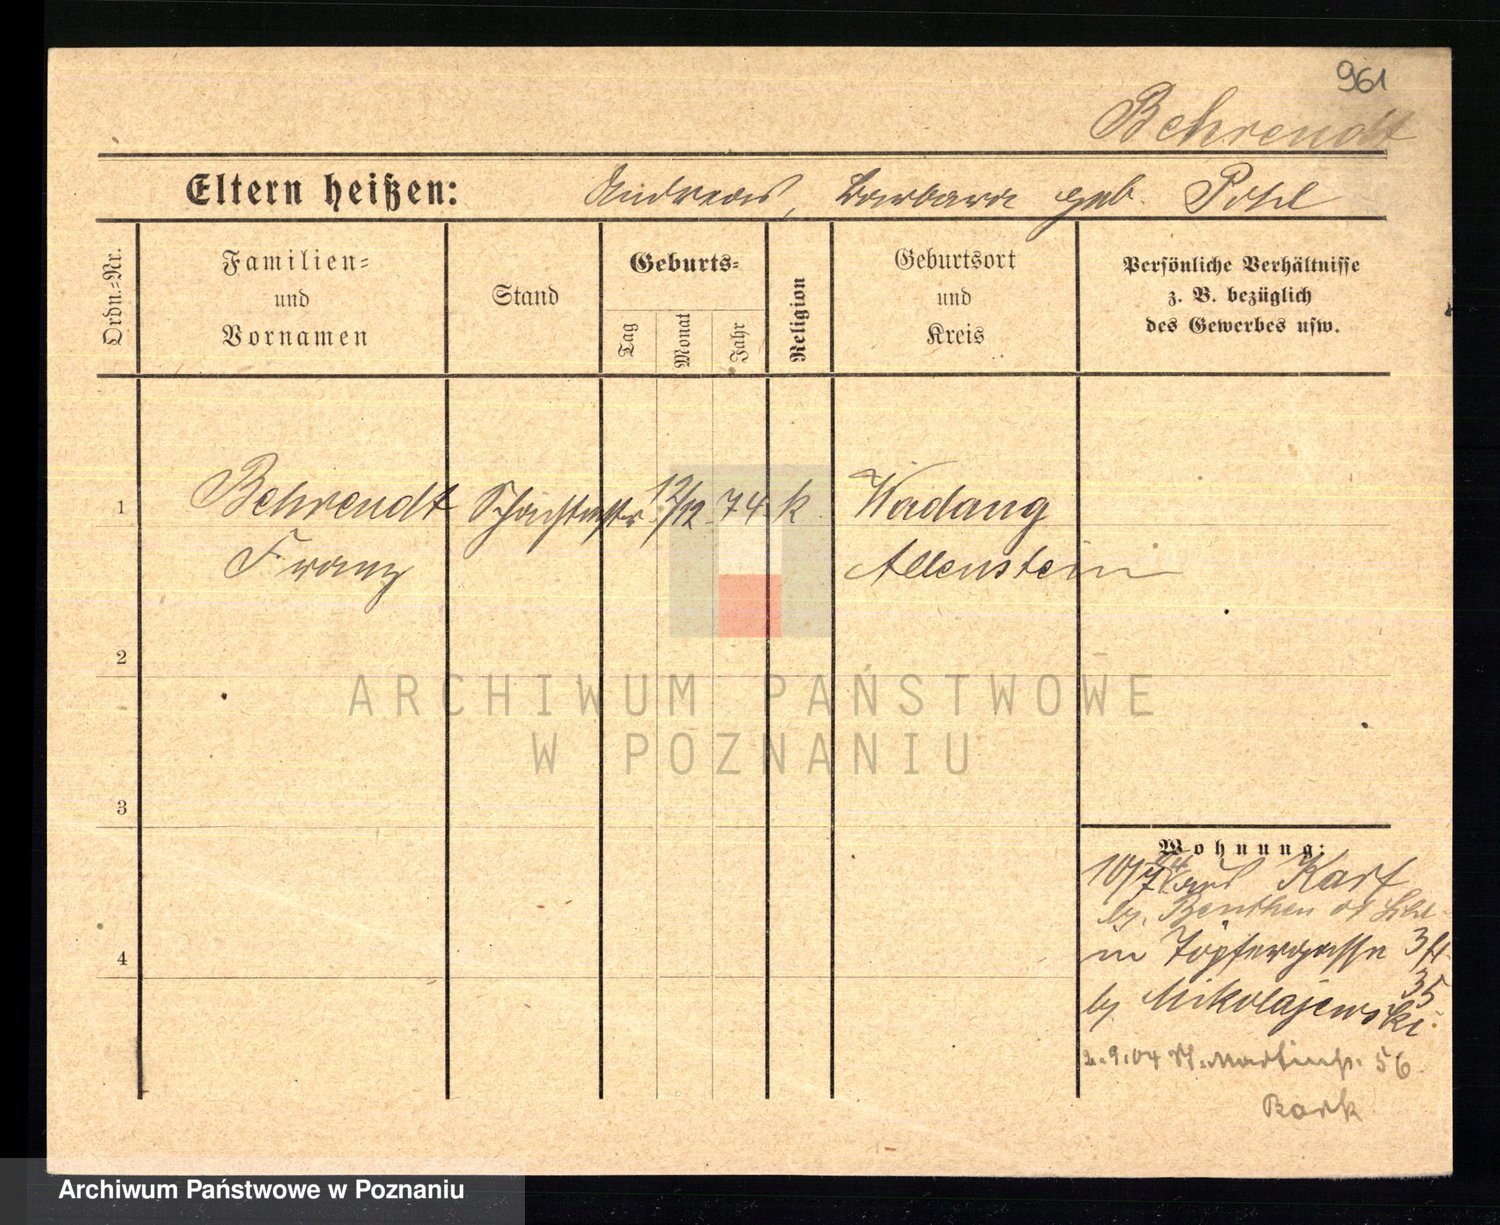 961
Behrendt
Eltern heißen: Andreas, Barbara geb. Pohl
Ordn.-Nr.
Familien-
und
Vornamen
Stand
Geburts-
Tag
Monat
Jahr
Religion
Geburtsort
und
Kreis
Persönliche Verhältnisse
z. B. bezüglich
des Gewerbes usw.
1 Behrendt 12/12 74 k Wadang
Franz Allenstein
2
3
4
Wohnung:
10/7 04 aus Karf
bj. Beuthen
in Töpfergasse 3
35
bj Mikolajewski.
2.9.04 St. Martinstr. 56
Bark
ARCHIWUM PAŃSTWOWE
W POZNANIU
Archiwum Państwowe w Poznaniu